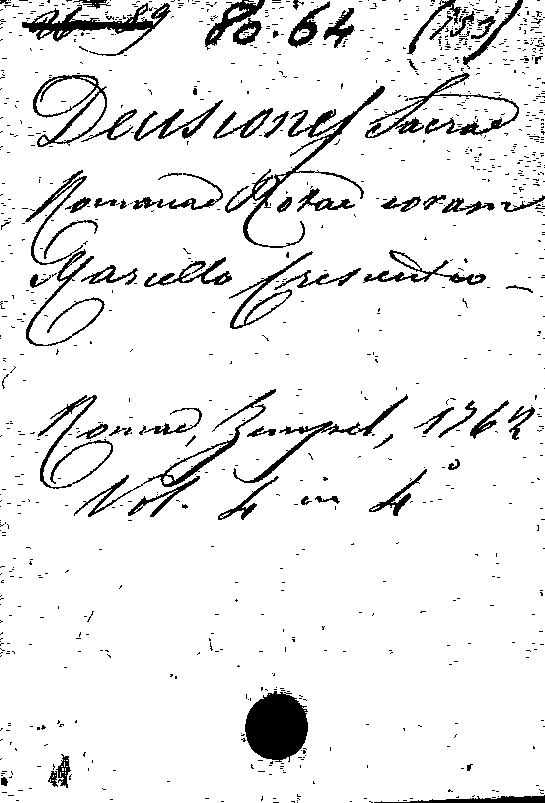 80.64 (133)
Decisiones Sacrae
Romanae Rotae coram
Marcello Crescentio
Romae, Zempel, 1762
Vol. 4 in 4°